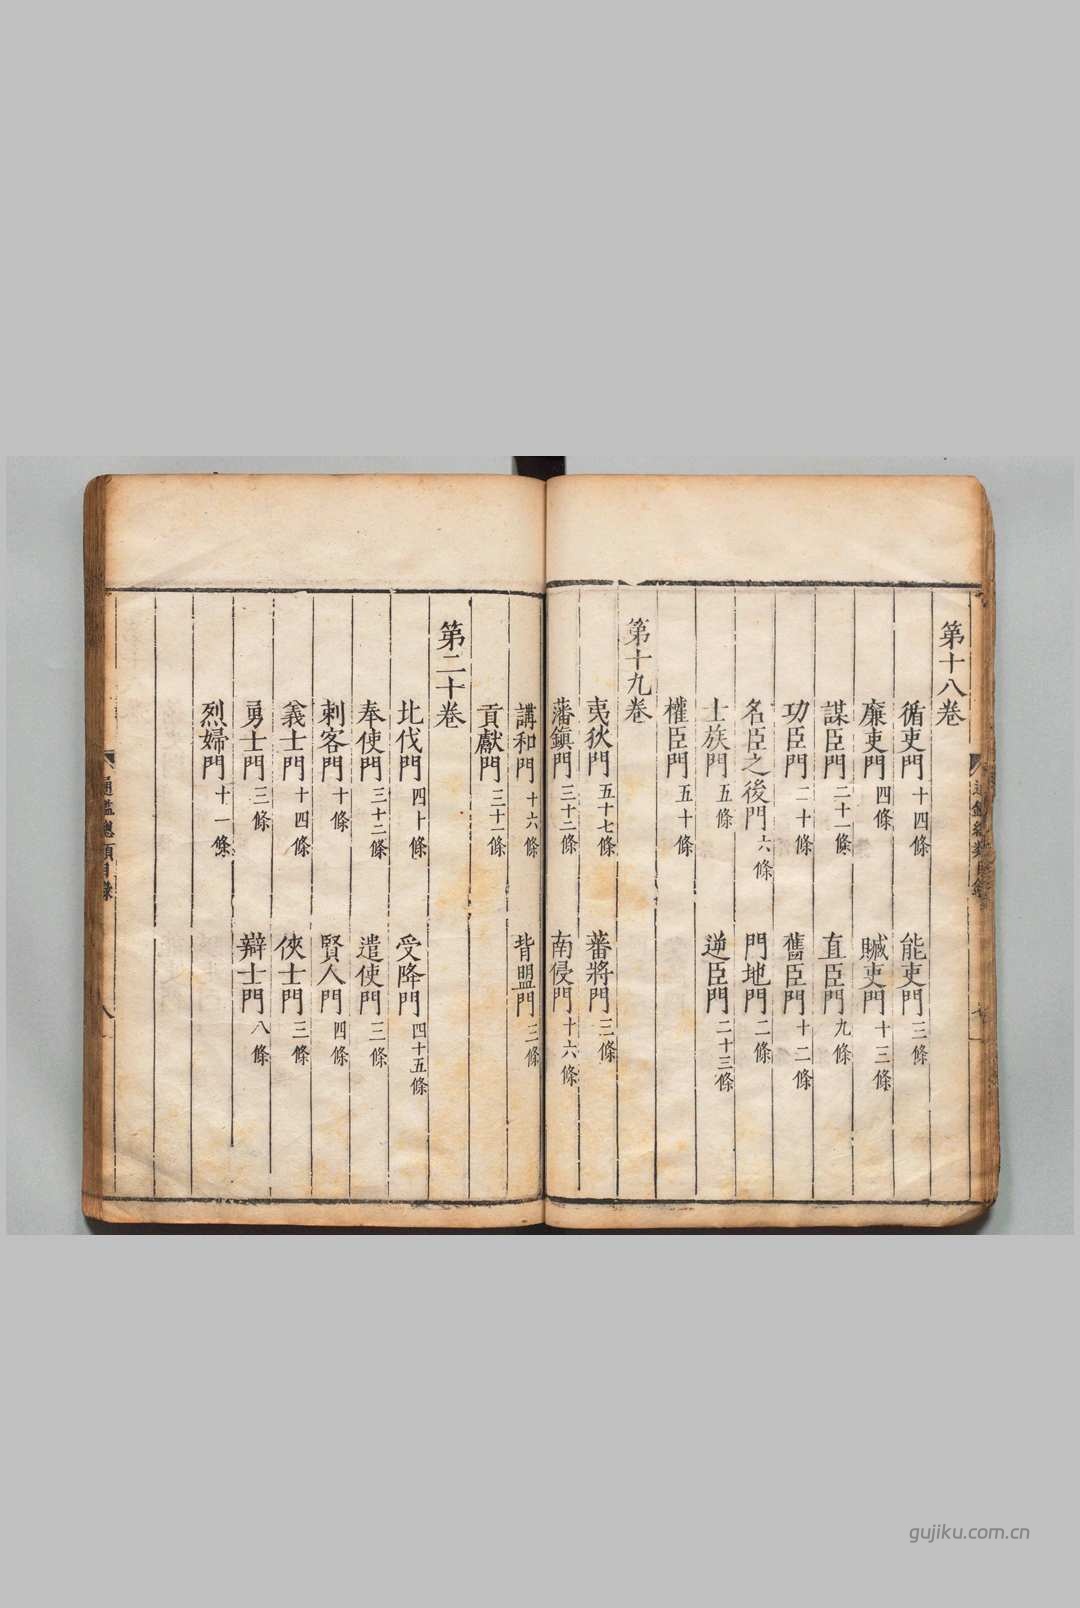 第十八卷
循吏門 十四條 能吏門 三條
廉吏門 四條 贓吏門 十三條
謀臣門 二十一條 直臣門 九條
功臣門 二十條 舊臣門 十二條
名臣之後門 六條 門地門 二條
士族門 五條 逆臣門 二十三條
權臣門 五十條
第十九卷
夷狄門 五十七條 蕃將門 三條
藩鎮門 三十二條 南侵門 十六條
講和門 十六條 背盟門 三條
貢獻門 三十一條
第二十卷
北伐門 四十條 受降門 四十五條
奉使門 三十二條 遣使門 三條
刺客門 十條 賢人門 四條
義士門 十四條 俠士門 三條
勇士門 三條 辯士門 八條
烈婦門 十一條
通鑑總類目錄 八
gujiku.com.cn